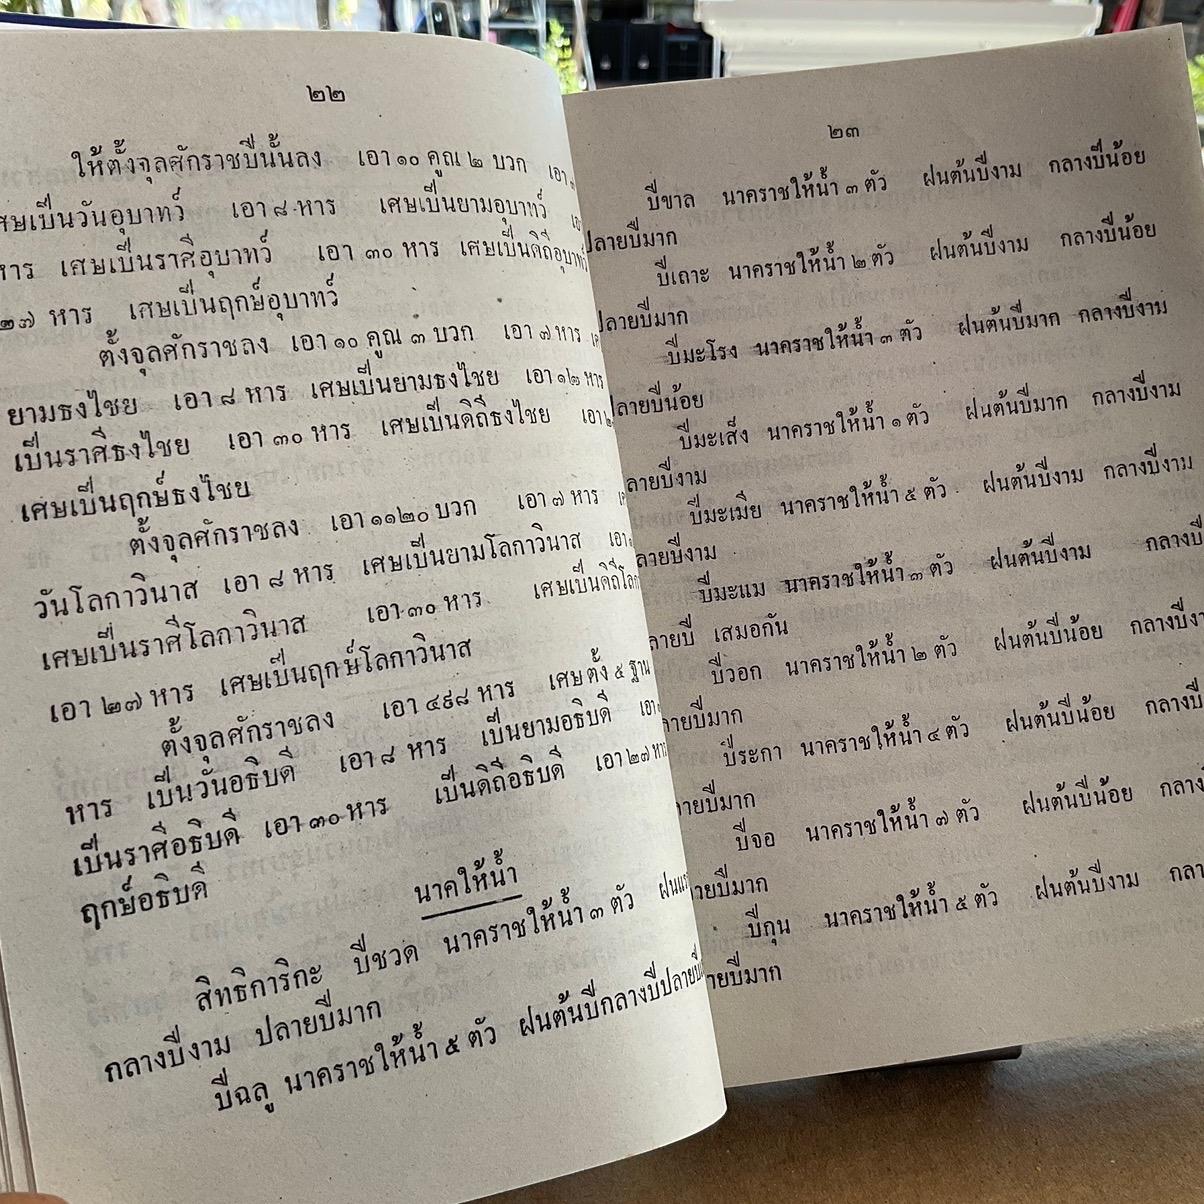 ๒๒
ให้ตั้งจุลศักราชปีนั้นลง เอา ๑๐ คูณ ๒ บวก เอา
เศษเป็นวันอุบาทว์ เอา ๘ หาร เศษเป็นยามอุบาทว์
หาร เศษเป็นราศีอุบาทว์ เอา ๓๐ หาร เศษเป็นดิถีอุบาทว์
๒๗ หาร เศษเป็นฤกษ์อุบาทว์
ตั้งจุลศักราชลง เอา ๑๐ คูณ ๓ บวก เอา ๗ หาร
ยามธงไชย เอา ๘ หาร เศษเป็นยามธงไชย เอา ๑๒ หาร
เป็นราศีธงไชย เอา ๓๐ หาร เศษเป็นดิถีธงไชย เอา
เศษเป็นฤกษ์ธงไชย
ตั้งจุลศักราชลง เอา ๑๑๒๐ บวก เอา ๗ หาร
วันโลกาวินาส เอา ๘ หาร เศษเป็นยามโลกาวินาส เอา
เศษเป็นราศีโลกาวินาส เอา ๓๐ หาร เศษเป็นดิถี
เอา ๒๗ หาร เศษเป็นฤกษ์โลกาวินาส
ตั้งจุลศักราชลง เอา ๔๙๘ หาร เศษตั้ง ๕ ฐาน
หาร เป็นวันอธิบดี เอา ๘ หาร เป็นยามอธิบดี เอา
เป็นราศีอธิบดี เอา ๓๐ หาร เป็นดิถีอธิบดี เอา ๒๗ หาร
ฤกษ์อธิบดี
นาคให้น้ำ
สิทธิการิกะ ปีชวด นาคราชให้น้ำ ๓ ตัว
กลางปีงาม ปลายปีมาก
ปีฉลู นาคราชให้น้ำ ๕ ตัว ฝนต้นปีกลางปีปลายปี
๒๓
ปีขาล นาคราชให้น้ำ ๓ ตัว ฝนต้นปีงาม กลางปีน้อย
ปลายปีมาก
ปีเถาะ นาคราชให้น้ำ ๒ ตัว ฝนต้นปีงาม กลางปีน้อย
ปลายปีมาก
ปีมะโรง นาคราชให้น้ำ ๓ ตัว ฝนต้นปีมาก กลางปีงาม
ปลายปีน้อย
ปีมะเส็ง นาคราชให้น้ำ ๑ ตัว ฝนต้นปีมาก กลางปีงาม
ปลายปีงาม
ปีมะเมีย นาคราชให้น้ำ ๕ ตัว ฝนต้นปีงาม กลางปีงาม
ปลายปีงาม
ปีมะแม นาคราชให้น้ำ ๓ ตัว ฝนต้นปีงาม กลางปี
ปลายปี เสมอกัน
ปีวอก นาคราชให้น้ำ ๒ ตัว ฝนต้นปีน้อย กลางปีงาม
ปลายปีมาก
ประกา นาคราชให้น้ำ ๔ ตัว ฝนต้นปีน้อย กลางปี
ปลายปีมาก
ปีจอ นาคราชให้น้ำ ๗ ตัว ฝนต้นปีน้อย กลาง
ปลายปีมาก
ปีกุน นาคราชให้น้ำ ๕ ตัว ฝนต้นปีงาม กลาง
ปลายปีมาก